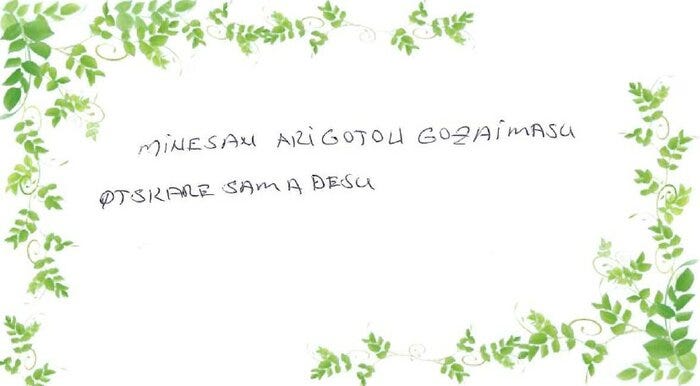 MINESAN ARIGOTOU GOZAIMASU
OTSKARE SAMA DESU